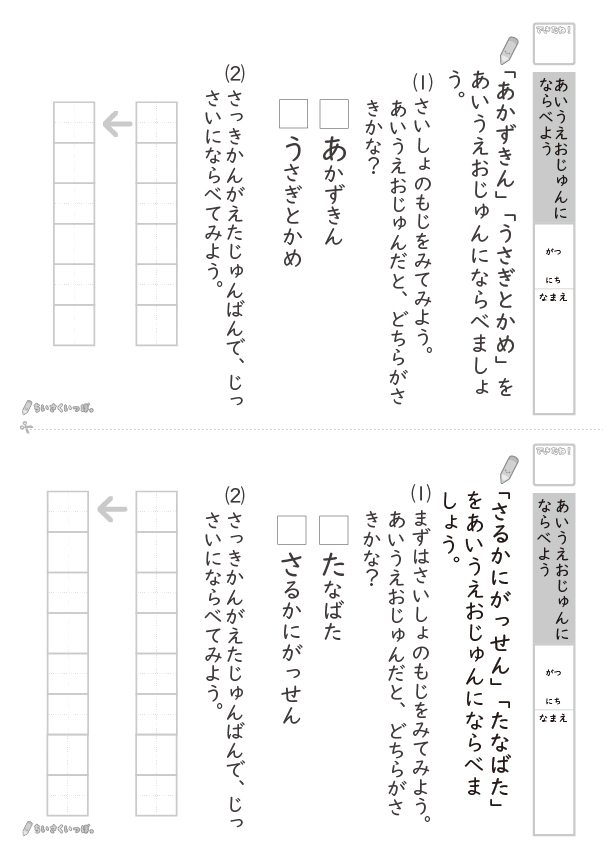 できたわ!
あいうえおじゅんに
ならべよう
がつ
にち
なまえ
「あかずきん」「うさぎとかめ」を
あいうえおじゅんにならべましょ
う。
(1)さいしょのもじをみてみよう。
あいうえおじゅんだと、どちらがさ
きかな?
あかずきん
うさぎとかめ
(2)さっきかんがえたじゅんばんで、じっ
さいにならべてみよう。
ちいさくいっぽ。
できたわ!
あいうえおじゅんに
ならべよう
がつ
にち
なまえ
「さるかにがっせん」「たなばた」
をあいうえおじゅんにならべま
しょう。
(1)まずはさいしょのもじをみてみよう。
あいうえおじゅんだと、どちらがさ
きかな?
たなばた
さるかにがっせん
(2)さっきかんがえたじゅんばんで、じっ
さいにならべてみよう。
ちいさくいっぽ。